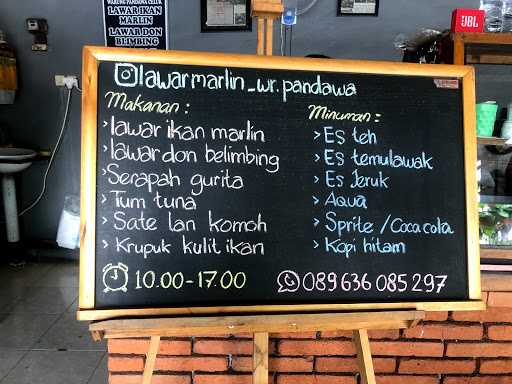 WARUNG PANDAWA CELUK
LAWAR IKAN
MARLIN
LAWAR DON
BLIMBING
JBL
lawarmarlin_wr.pandawa
Makanan :
> lawar ikan marlin
> lawar don belimbing
> Serapah gurita
> Tum tuna
> Sate lan komoh
> Krupuk kulit ikan
Minuman :
> Es teh
> Es temulawak
> Es Jeruk
> Aqua
> Sprite / Coca cola
> Kopi hitam
10.00 - 17.00
089 636 085 297